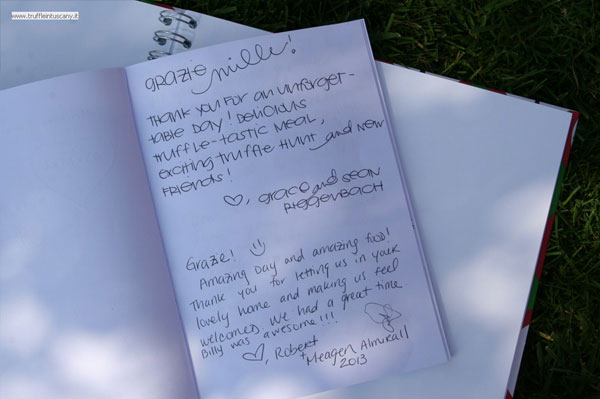 www.truffleintuscany.it
GRAZIE mille!
THANK YOU FOR AN UNFORGET-
TABLE DAY! DELICIOUS
TRUFFLE-TASTIC MEAL,
EXCITING TRUFFLE HUNT and NEW
FRIENDS!
♡, GRACE and SEAN
RIGGENBACH
Grazie! :)
Amazing Day and amazing food!
Thank you for letting us in your
lovely home and making us feel
welcomed. We had a great time
Billy was awesome!!!
♡, Robert
+ Meagen Almirall
2013